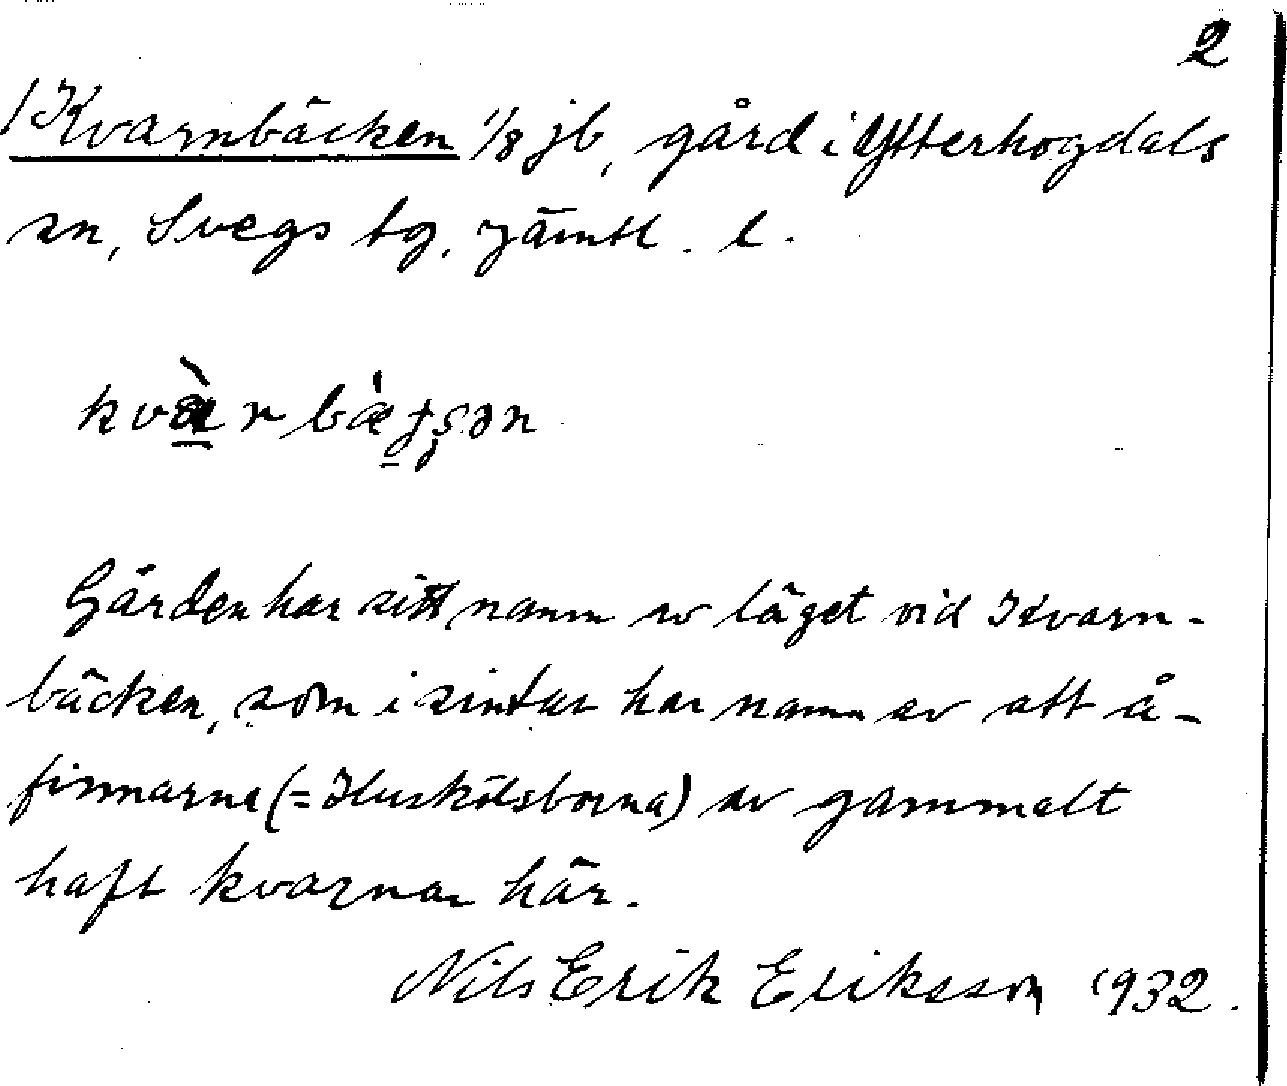 2
1 Kvarnbäcken 1/8 jb, gård i Ytterhogdals
sn, Svegs tg, Jämtl. l.
kvæ̀r bæ̀ţşən
Gården har sitt namn av läget vid Kvarn-
bäcken, som i sin tur har namn av att å-
finnarne (= Huskölsborna) av gammalt
haft kvarnar här.
Nils Erik Eriksson 1932.